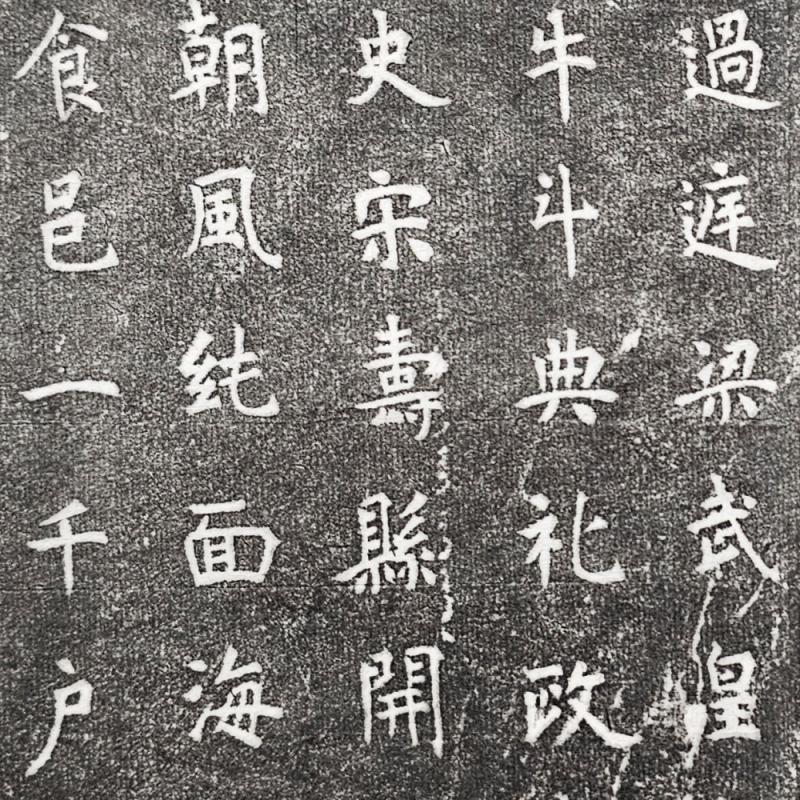 過遅梁武皇
牛斗典礼政
史宋壽縣開
朝風純面海
食邑一千户